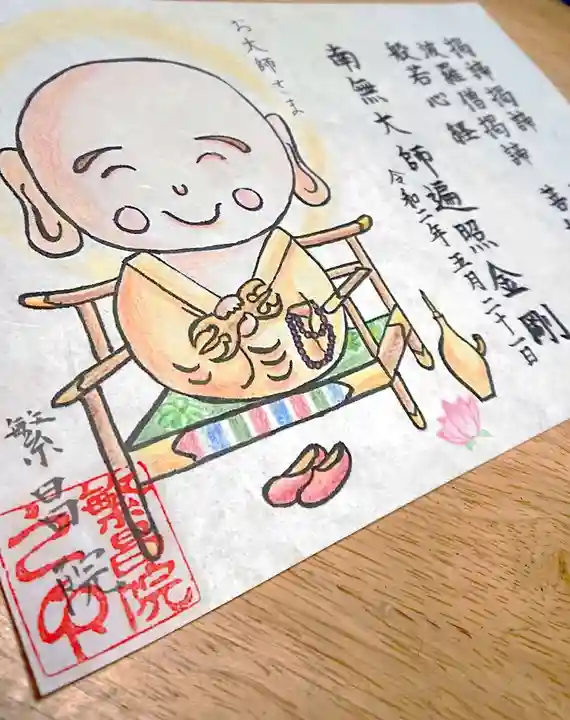 揭諦揭諦
波羅僧揭諦
般若心経
南無大師遍照金剛
令和二年五月二十一日
お大師さま
繁昌院
繁昌院